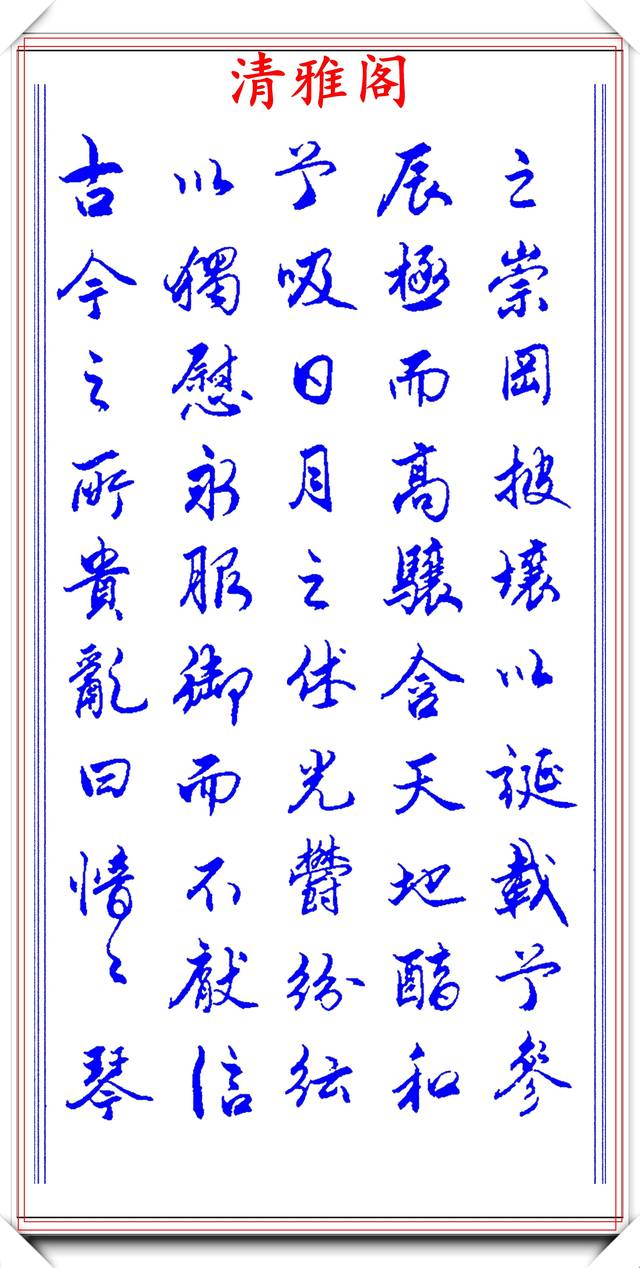 清雅阁
之崇岡披壤以誕載兮參
辰極而高驤含天地醕和
兮吸日月之休光鬱紛紜
以獨慰永服御而不猒信
古今之所貴亂曰愔〻琴